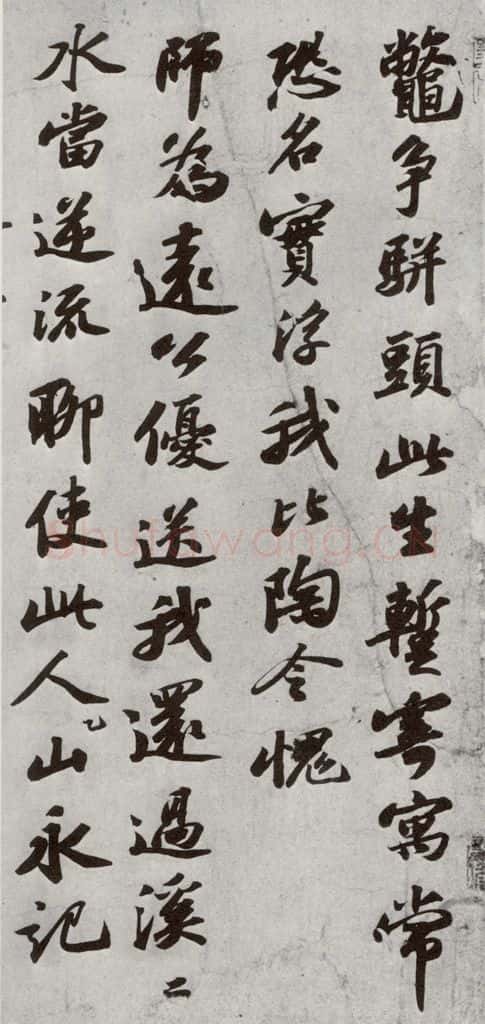 鼈争駢頭此生蹔寄寓常
恐名實浮我比陶令愧
師為遠公優送我還過溪二
水當逆流聊使此人山永記
Shufawang.CN